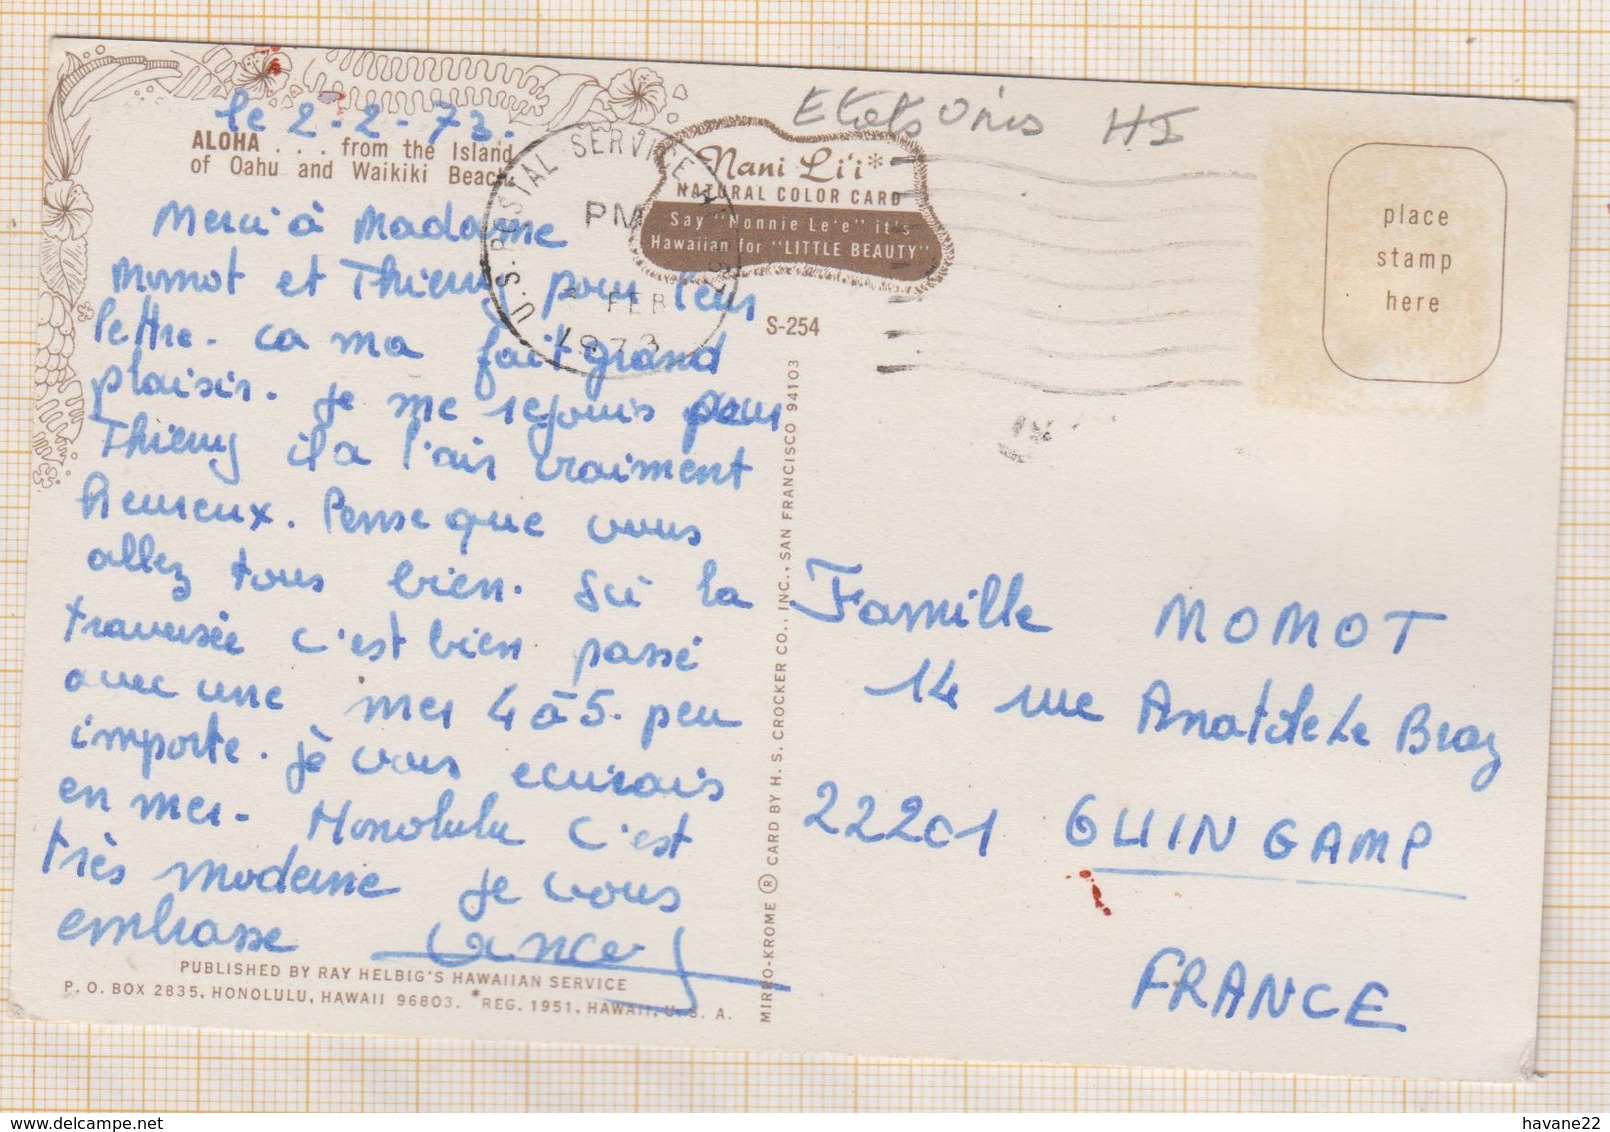 Etats Unis HI
le 2-2-73.
ALOHA . . . from the Island
of Oahu and Waikiki Beach.
Merci à Madame
Momot et Thierry pour leur
lettre. ca ma fait grand
plaisir. je me rejouis pour
Thierry il a l'air vraiment
heureux. Pense que vous
allez tous bien. Ici la
traversée c'est bien passé
avec une mer 4 à 5. peu
importe. je vous ecrirais
en mer. Honolulu c'est
très moderne je vous
embrasse
PUBLISHED BY RAY HELBIG'S HAWAIIAN SERVICE
P. O. BOX 2835, HONOLULU, HAWAII 96803. *REG. 1951, HAWAII, U. S. A.
U.S. POSTAL SERVICE
PM
FEB
1973
Nani Li'i*
NATURAL COLOR CARD
Say "Nonnie Le'e" it's
Hawaiian for "LITTLE BEAUTY"
S-254
MIRRO-KROME ® CARD BY H. S. CROCKER CO., INC., SAN FRANCISCO 94103
place
stamp
here
Famille MOMOT
14 rue Anatole Le Braz
22201 GUINGAMP
FRANCE
havane22